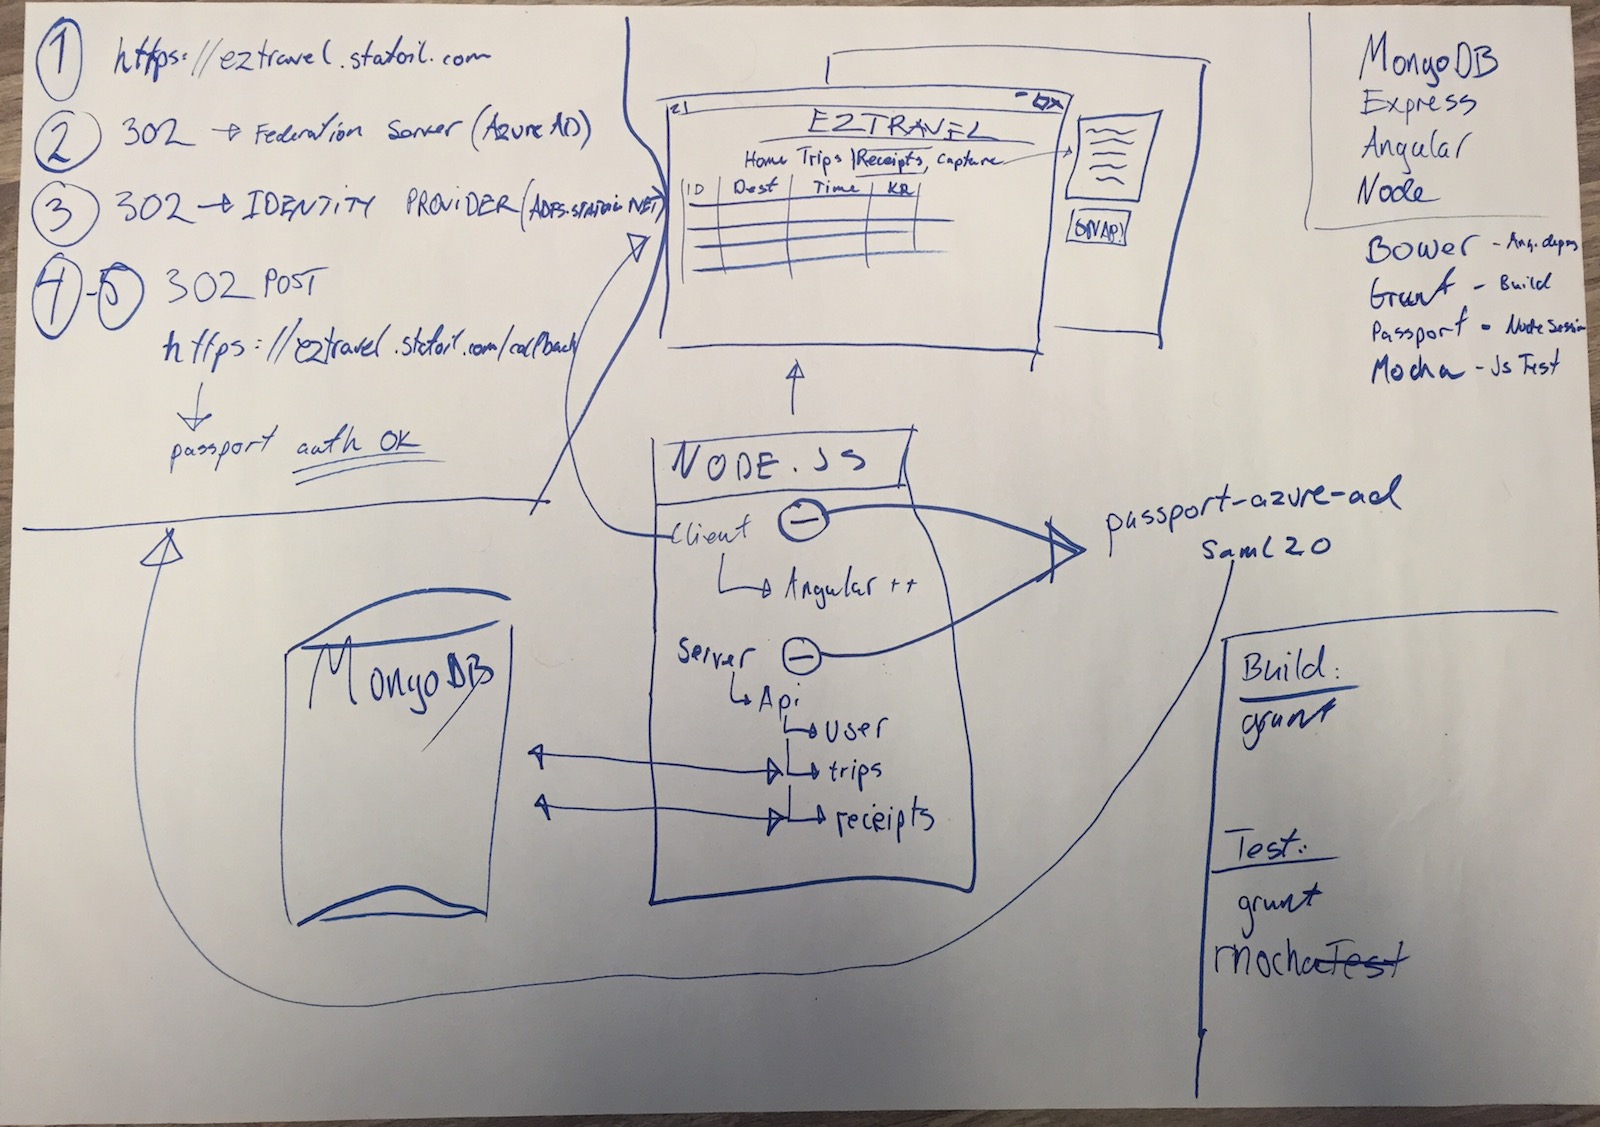 1 https://eztravel.statoil.com
2 302 → Federation Server (Azure AD)
3 302 → IDENTITY PROVIDER (ADFS.STATOIL.NET)
4-5 302 POST
https://eztravel.statoil.com/callback
passport auth OK
EZTRAVEL
Home Trips Receipts, Capture
ID Dest Time KR
SNAP!
MongoDB
Express
Angular
Node
Bower - Ang. depns
Grunt - Build
Passport - Node Session
Mocha - Js Test
NODE.JS
Client
Angular ++
Server
Api
user
trips
receipts
passport-azure-ad
saml 2.0
MongoDB
Build:
grunt
Test:
grunt
mochaTest